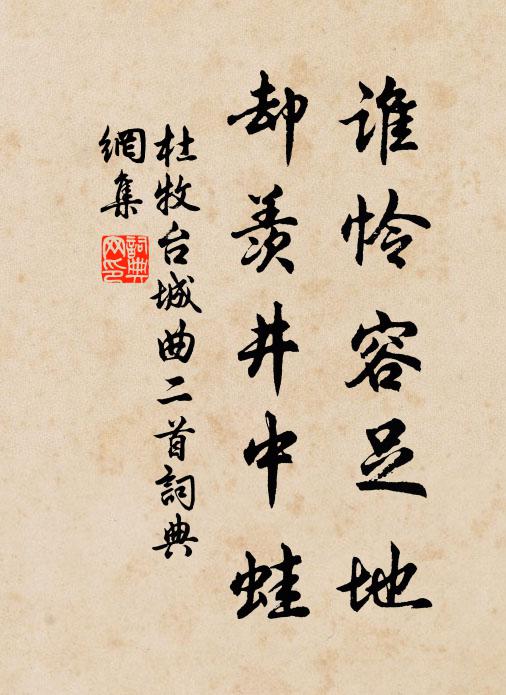 谁怜容足地
却羡井中蛙
杜牧台城曲二首詞典
網集
詞典
网印